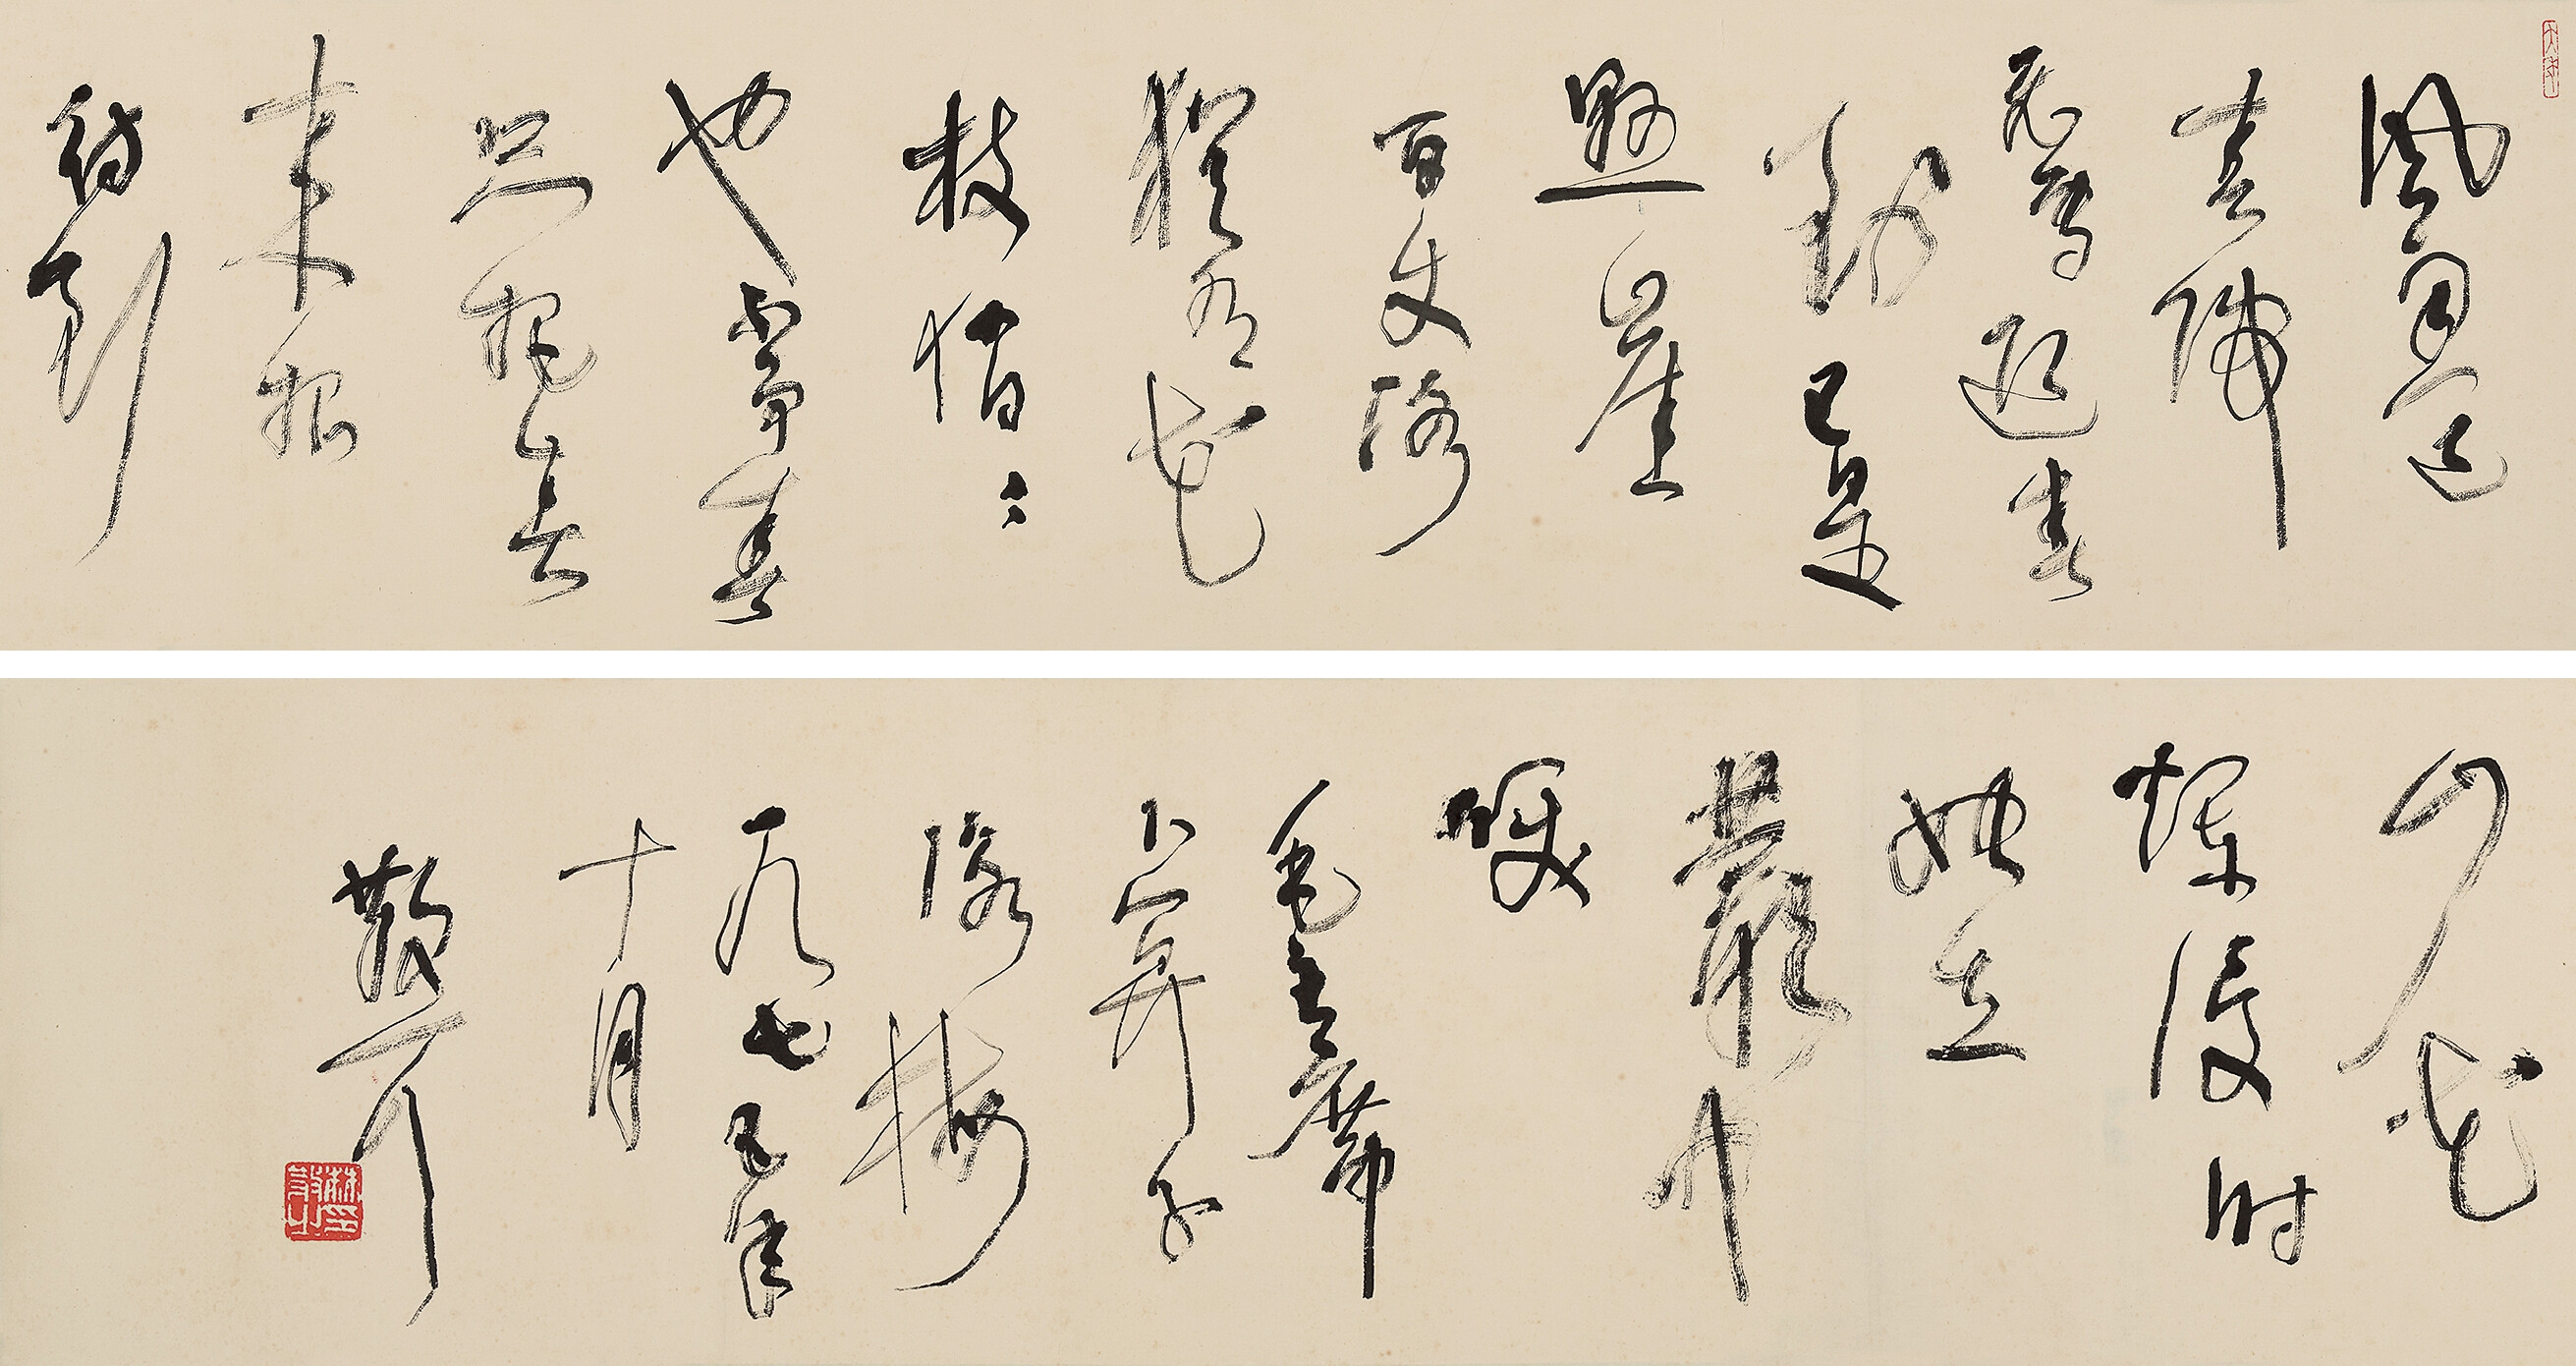 風雨送
春歸
飛雪迎春
到已是
懸崖
百丈冰
猶有花
枝俏俏
也不爭春
只把春
來報
待到
山花
爛漫时
她在
叢中
笑
毛主席
卜算子
咏梅
一九七五年
十月
散耳
林散之印